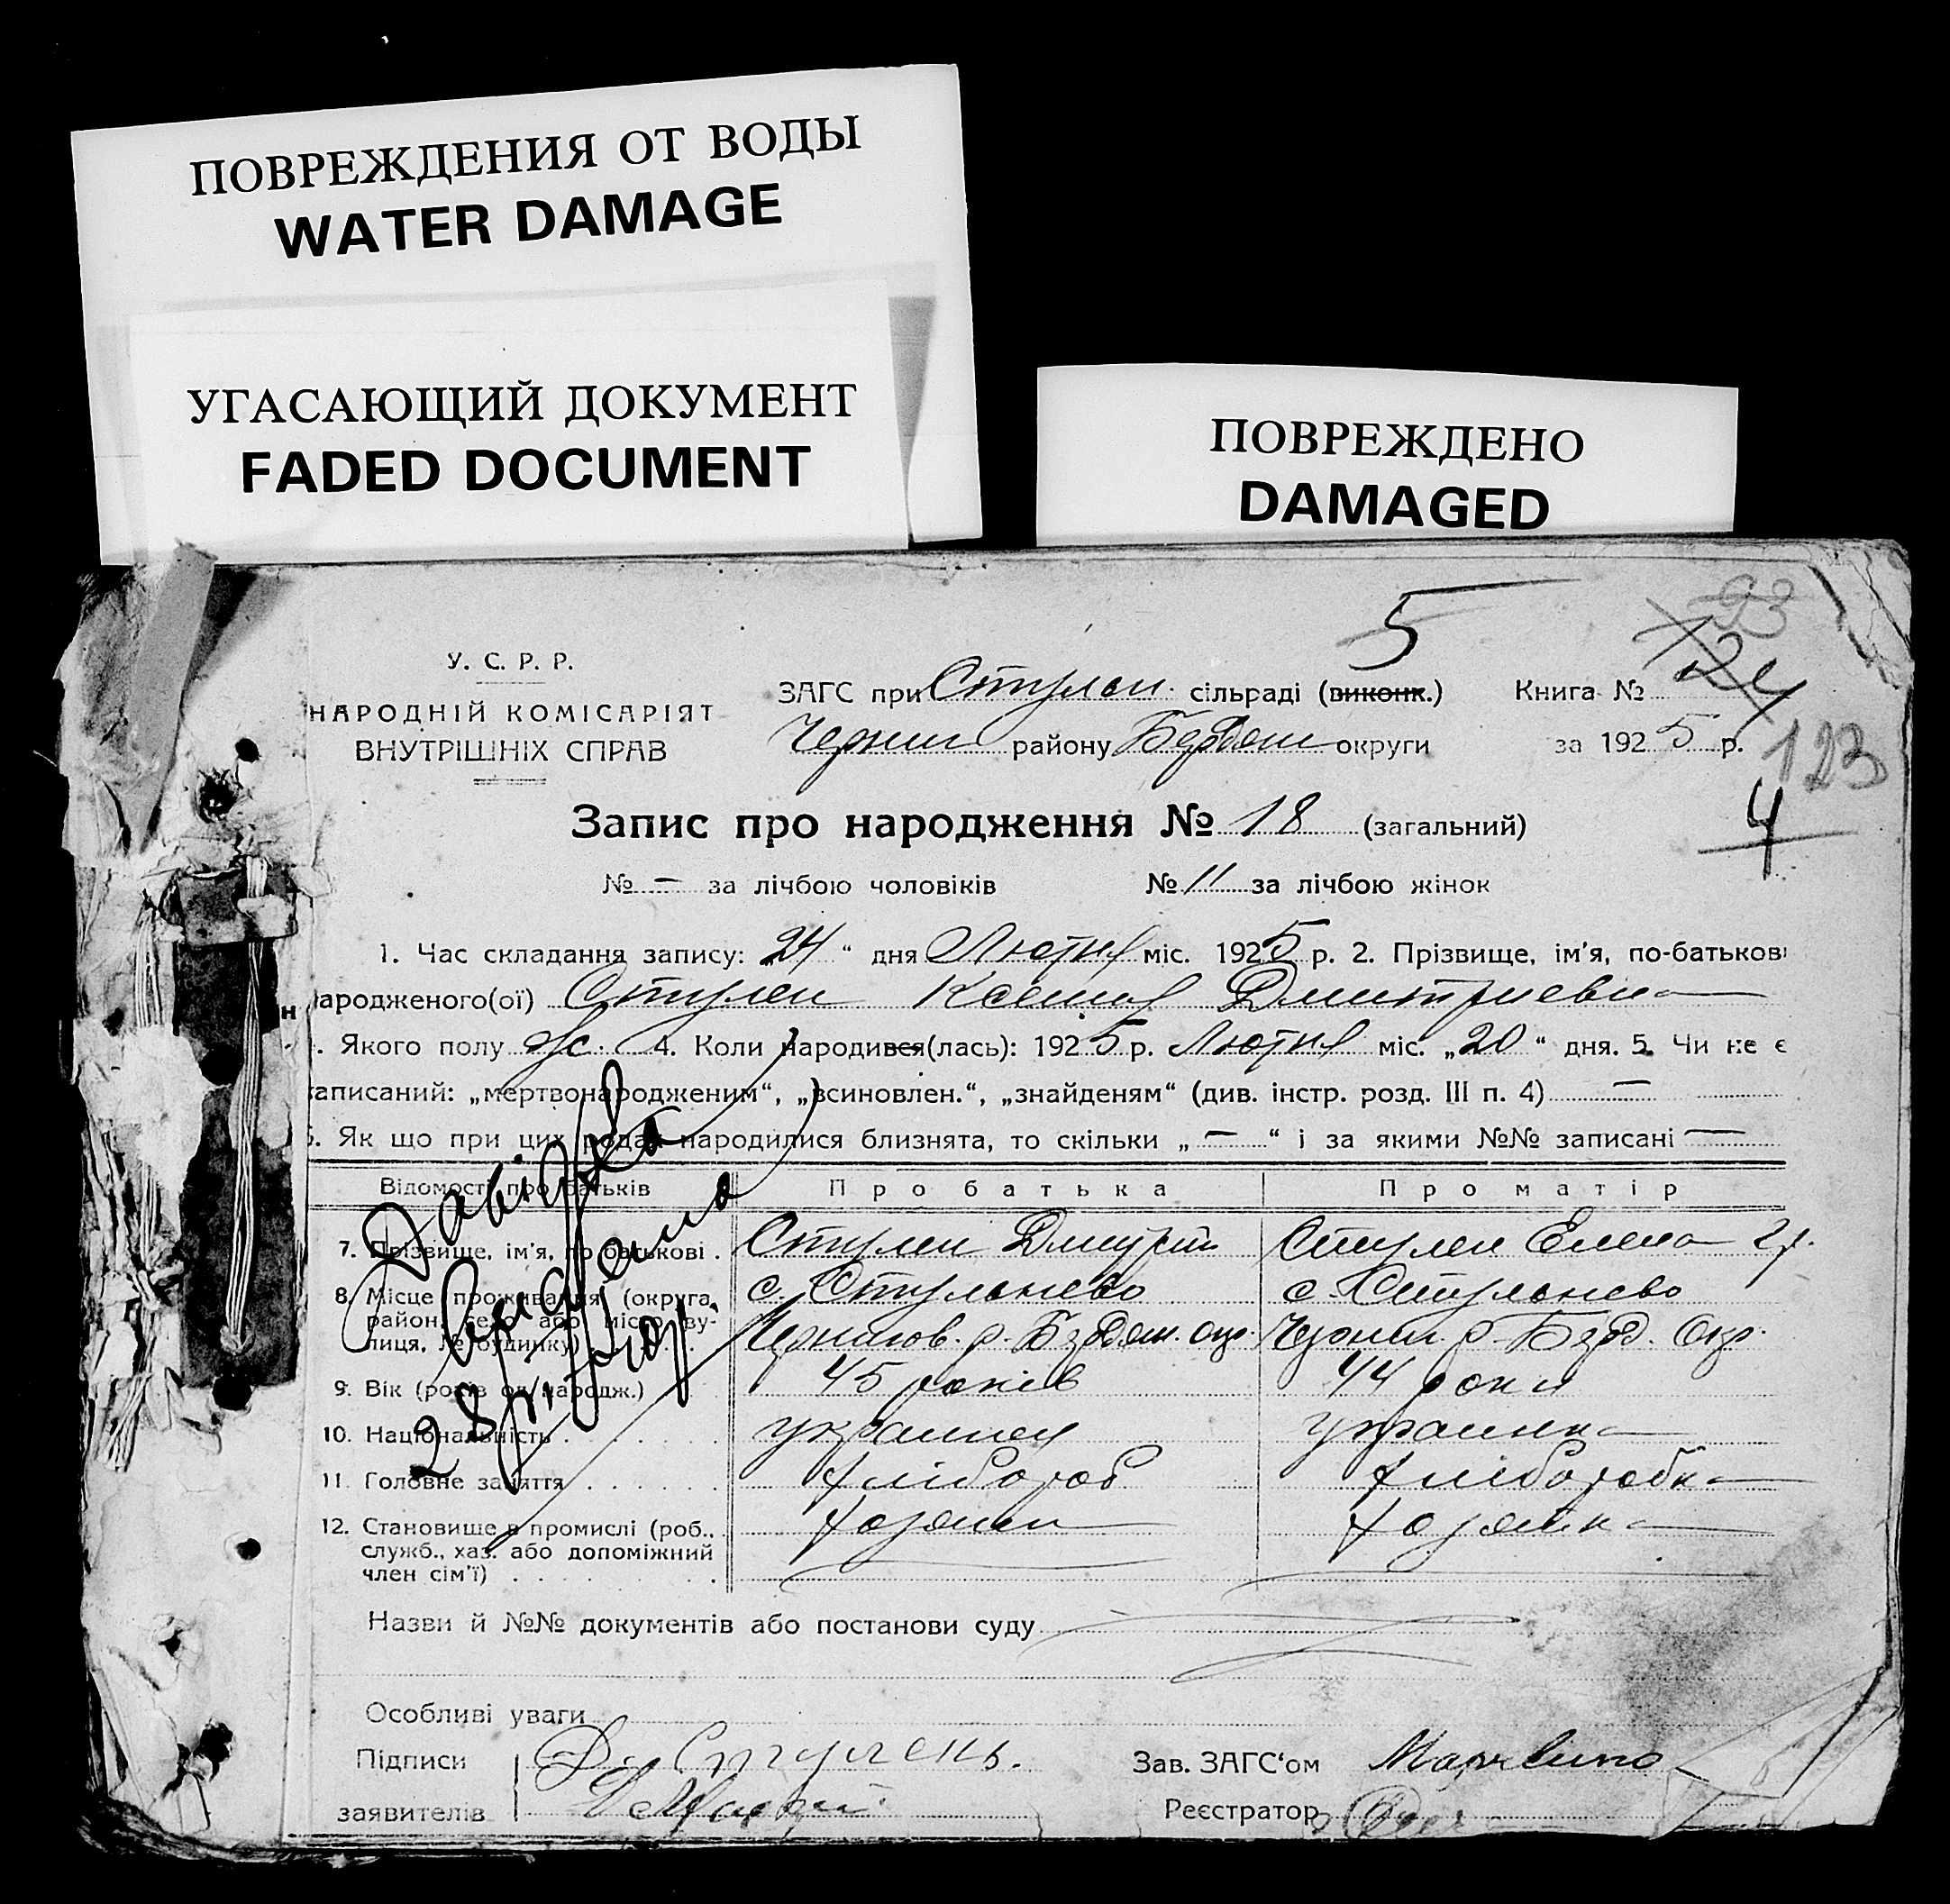 ПОВРЕЖДЕНИЯ ОТ ВОДЫ
WATER DAMAGE
УГАСАЮЩИЙ ДОКУМЕНТ
FADED DOCUMENT
ПОВРЕЖДЕНО
DAMAGED
5
93
124
123
4
У. С. Р. Р.
НАРОДНІЙ КОМІСАРІЯТ
ВНУТРІШНІХ СПРАВ
ЗАГС при сільраді (виконк.) Книга №
району Бердян округи за 1925 р.
Запис про народження № 18 (загальний)
№ – за лічбою чоловіків № 11 за лічбою жінок
1. Час складання запису: „24“ дня Лютня міс. 1925 р. 2. Прізвище, ім'я, по-батькові
народженого(ої) Стулен Ксения Дмитриевна
Якого полу ж. 4. Коли народився(лась): 1925 р. Лютня міс. „20“ дня. 5. Чи не є
записаний: „мертвонародженим“, „всиновлен.“, „знайденям“ (див. інстр. розд. III п. 4) —
6. Як що при цих родах народилися близнята, то скільки „—“ і за якими №№ записані —
Відомості про батьків Про батька Про матір
7. Прізвище, ім'я, по батькові . Стулен Дмитрий Стулен Елена
8. Місце проживання (округа, район, село або місто, вулиця, № будинку) с. Стульнево с. Стульнево
Чернигов. р. Бердян. окр. Черниг. р. Берд. Окр.
9. Вік (років од народж.) 45 років 44 роки
10. Національність украинец украинка
11. Головне заняття хлібороб хлібо­робка
12. Становище в промислі (роб., служб., хаз. або допоміжний член сім'ї) хозяин хозяйка
Назви й №№ документів або постанови суду
Особливі уваги
Підписи Стулень. Зав. ЗАГС'ом
заявителів Реєстратор